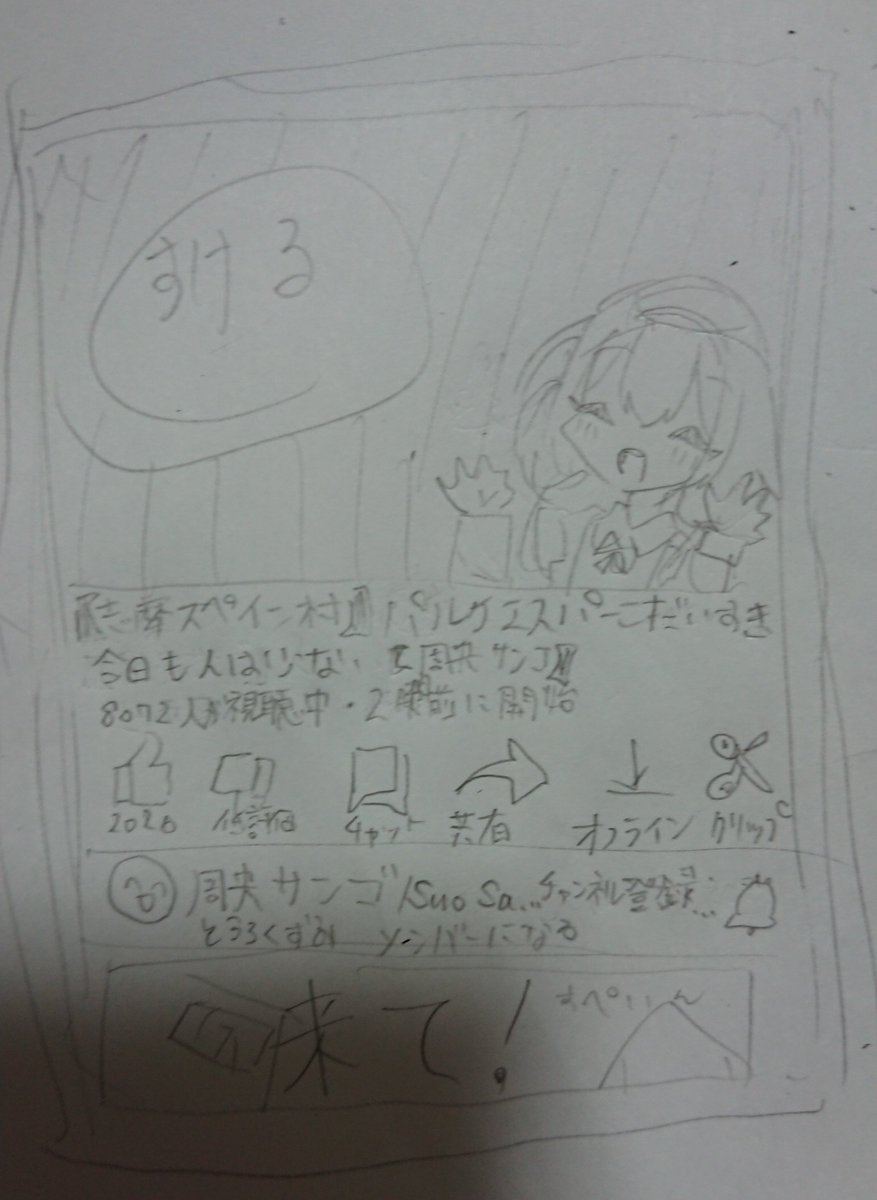 すける
【志摩スペイン村】パルケエスパーニャだいすき
今日も人は少ない【周央サンゴ】
8072人が視聴中・2時間前に開始
2020 低評価 チャット 共有 オフライン クリップ
周央サンゴ/Suo Sa... チャンネル登録...
とうろくずみ メンバーになる
来て!
すぺいん